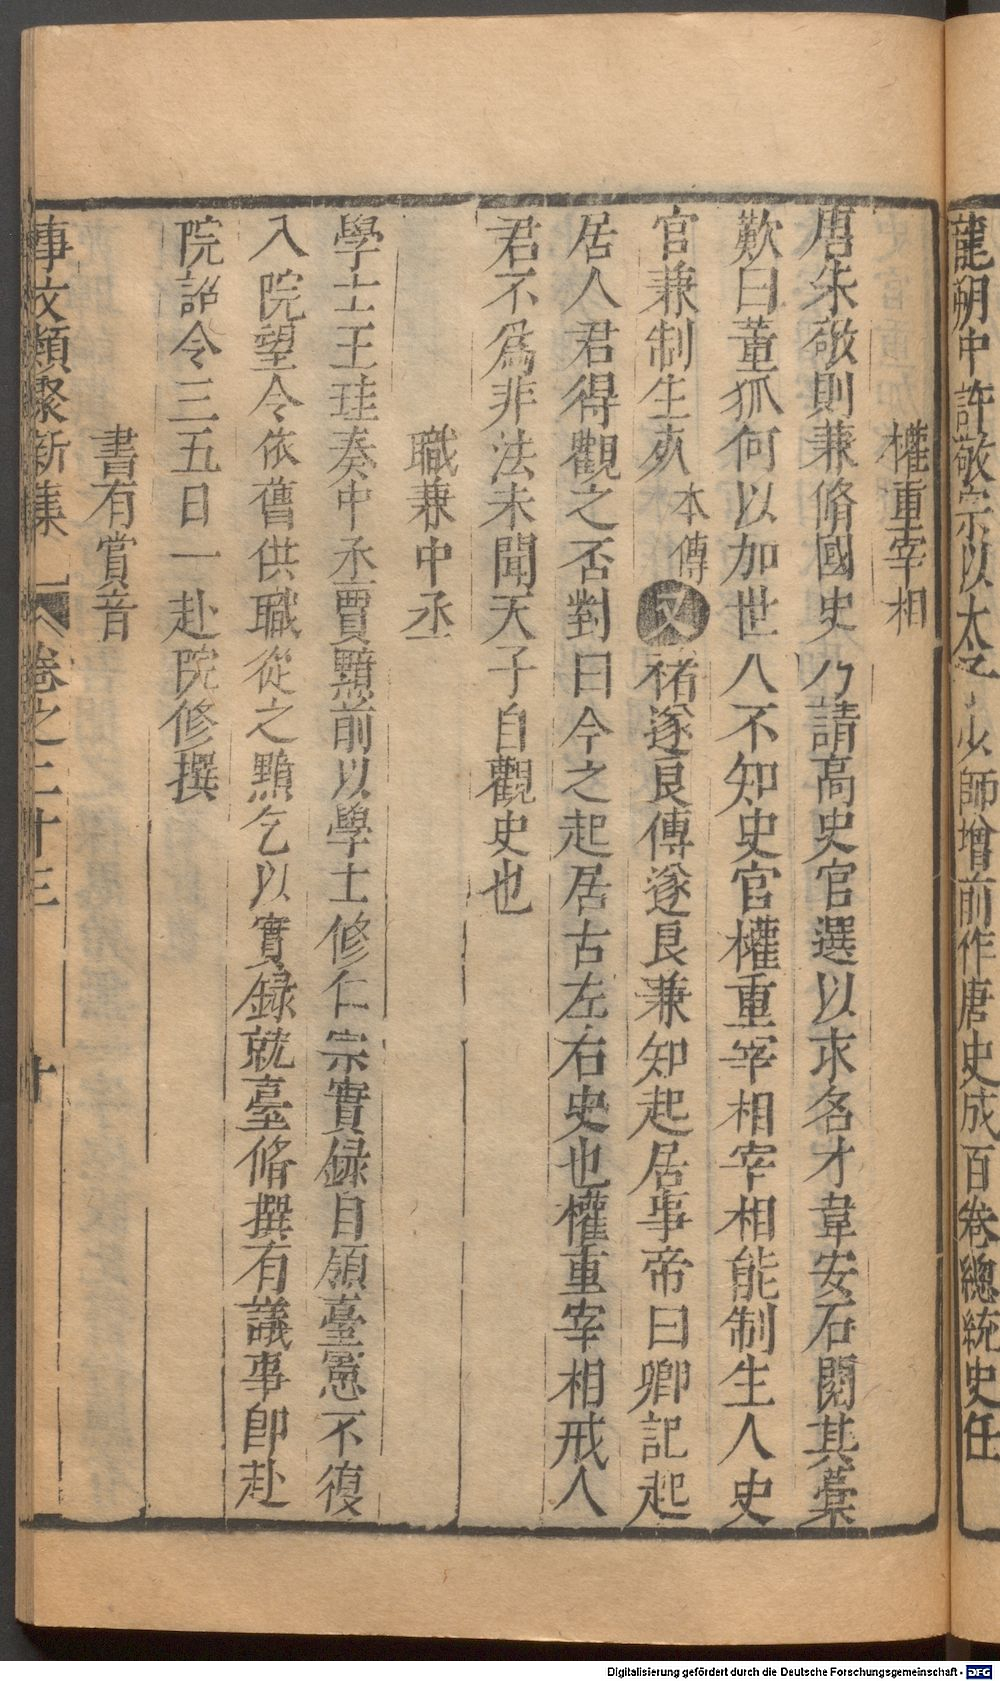 龍朔中許敬宗以太子少師增前作唐史成百卷總統史任
權重宰相
唐朱敬則兼脩國史乃請高史官選以求名才韋安石閱其藁
歎曰董狐何以加世人不知史官權重宰相宰相能制生人史
官兼制生死本傳又褚遂良傳遂良兼知起居事帝曰卿記起
居人君得觀之否對曰今之起居古左右史也權重宰相戒人
君不爲非法未聞天子自觀史也
職兼中丞
學士王珪奏中丞賈黯前以學士修仁宗實録自領臺憲不復
入院望令依舊供職從之黯乞以實録就臺脩撰有議事即赴
院詔令三五日一赴院修撰
書有賞音
事文類聚新集 卷之二十三 廿
Digitalisierung gefördert durch die Deutsche Forschungsgemeinschaft - DFG